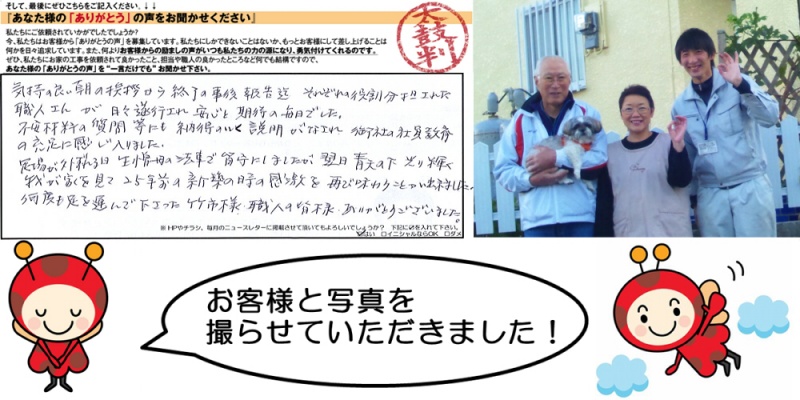 そして、最後にぜひこちらをご記入ください。↓↓
『あなた様の「ありがとう」の声をお聞かせください』
私たちにご依頼されていかがでしたでしょうか?
今、私たちはお客様から「ありがとうの声」を募集しています。私たちにしかできないことはないか、もっとお客様にして差し上げることは
何かを日々追求しています。また、何よりお客様からの励ましの声がいつも私たちの力の源になり、勇気付けてくれるのです。
ぜひ、私たちにお家の工事を依頼されて良かったこと、担当や職人の良かったところなど何でも結構ですので、
あなた様の「ありがとうの声」を“一言だけでも”お聞かせ下さい。
太鼓判
気持の良い朝の挨拶から終了の事後報告迄 それぞれの役割分担された
職人さんが日々遂行され 安心と期待の毎日でした。
不足材料の質問等にも納得のいく説明がなされ 御社の社員教育
の充実に感じ入りました。
足場が外れる日 生憎母の法事で留守にしましたが 翌日 青天の下 光り輝く
我が家を見て 25年前の新築の時の感激を再び味わうことが出来ました。
何度も足を運んで下さった 竹市様・職人の皆様・ありがとうございました。
※HPやチラシ、毎月のニュースレターに掲載させて頂いてもよろしいでしょうか? 下記に☑を入れて下さい。
☑はい □イニシャルならOK □ダメ
お客様と写真を
撮らせていただきました!